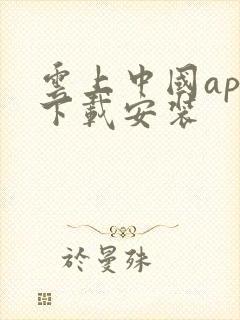 雲上中國ap
下載安裝
於曼殊